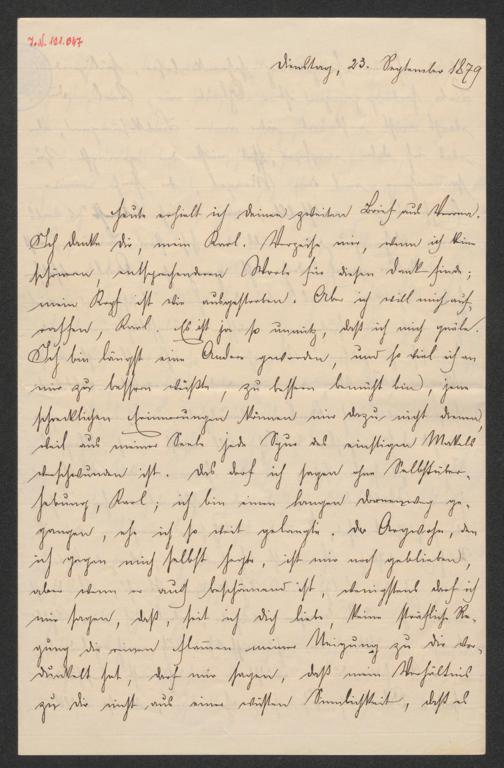 I.N. 121.047
Dienstag, 23. September 1879
Heute erhielt ich deinen zweiten Brief aus Verona.
Ich danke dir, mein Karl. Verzeihe mir, wenn ich keine
schöneren, entsprechenderen Worte für diesen Dank finde;
mein Kopf ist wie ausgestorben. Aber ich will mich auf-
raffen, Karl. Es ist ja so unnütz, daß ich mich quäle.
Ich bin längst eine Andere geworden, und so viel ich an
mir zu bessern wüßte, zu bessern bemüht bin, jene
schrecklichen Erinnerungen können mir dazu nicht dienen,
weil aus meiner Seele jede Spur des einstigen Makels
verschwunden ist. Das darf ich sagen ohne Selbstüber-
hebung, Karl; ich bin einen langen Dornenweg ge-
gangen, ehe ich so weit gelangte. Der Argwohn, den
ich gegen mich selbst hegte, ist mir noch geblieben,
aber wenn er auch beschämend ist, wenigstens darf ich
mir sagen, daß, seit ich dich liebe, keine sträfliche Re-
gung die reinen Flammen meiner Neigung zu dir ver-
dunkelt hat, darf mir sagen, daß mein Verhältnis
zu dir nicht aus einer wüsten Sinnlichkeit, daß es